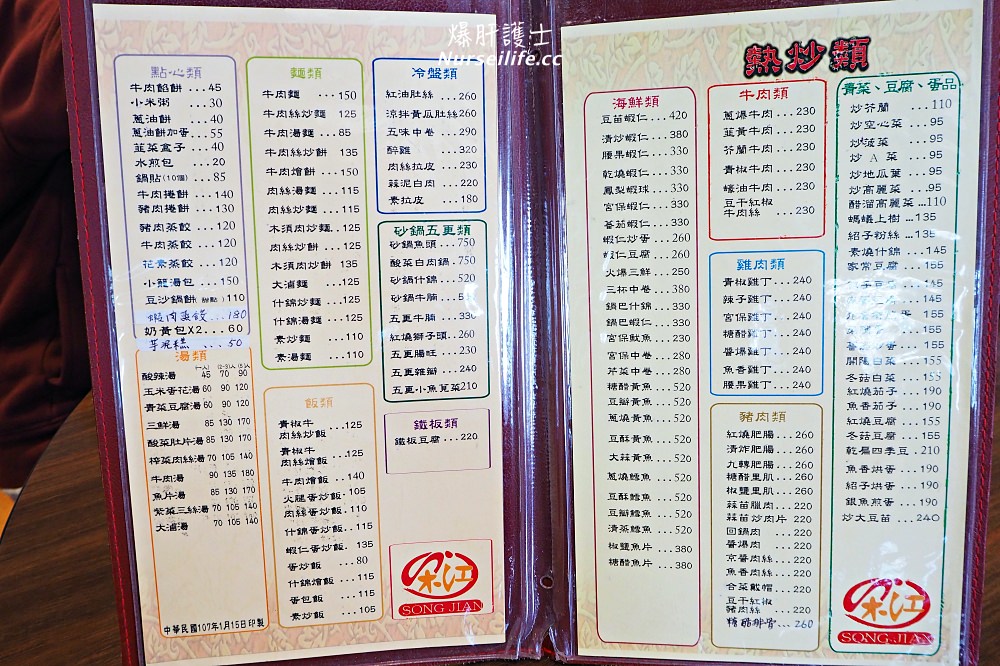 爆肝護士
Nurseilife.cc
點心類
牛肉餡餅 ...45
小米粥 ...30
蔥油餅 ...40
蔥油餅加蛋...55
韮菜盒子 ...40
水煎包 ...20
鍋貼(10個) ...85
牛肉捲餅 ...140
豬肉捲餅 ...130
豬肉蒸餃 ...120
牛肉蒸餃 ...120
花素蒸餃 ...120
小籠湯包 ...150
豆沙鍋餅(甜點)110
蝦肉蒸餃...180
奶黃包X2...60
...50
湯類
(一人) (2-3)人 (5人)
酸辣湯 45 70 90
玉米蛋花湯 60 90 120
青菜豆腐湯 60 90 120
三鮮湯 85 130 170
酸菜肚片湯 85 130 170
榨菜肉絲湯 70 105 140
牛肉湯 90 135 180
魚片湯 85 130 170
紫菜三絲湯 70 105 140
大滷湯 70 105 140
中華民國107年1月15日印製
麵類
牛肉麵 ...150
牛肉絲炒麵 125
牛肉湯麵 ...85
牛肉絲炒餅 135
牛肉燴餅 ...150
肉絲湯麵 ...115
肉絲炒麵 ...115
木須肉炒麵.125
肉絲炒餅 ...125
木須肉炒餅 135
大滷麵 ...125
什錦炒麵 ...125
什錦湯麵 ...125
素炒麵 ...110
素湯麵 ...110
飯類
青椒牛
肉絲炒飯 ...125
青椒牛
肉絲燴飯 ...125
牛肉燴飯 ..140
火腿蛋炒飯.105
肉絲蛋炒飯.110
什錦蛋炒飯..115
蝦仁蛋炒飯. 135
蛋炒飯 ...80
什錦燴飯 ...115
蛋包飯 ...115
素炒飯 ...105
冷盤類
紅油肚絲 ...260
涼拌黃瓜肚絲260
五味中卷 ...290
醉雞 ...320
肉絲拉皮 ...230
蒜泥白肉 ...220
素拉皮 ...180
砂鍋五更類
砂鍋魚頭 ...750
酸菜白肉鍋...750
砂鍋什錦 ...520
砂鍋牛腩 ...510
五更牛腩 ...330
紅燒獅子頭..260
五更腸旺 ...230
五更雞瓣 ...240
五更小魚莧菜210
鐵板類
鐵板豆腐 ...220
宋江
SONG JIAN
熱炒類
海鮮類
豆苗蝦仁 ...420
清炒蝦仁 ...380
腰果蝦仁 ...330
乾燒蝦仁 ...330
鳳梨蝦球 ...330
宮保蝦仁 ...330
蕃茄蝦仁 ...330
蝦仁炒蛋 ...260
蝦仁豆腐 ...260
火爆三鮮 ...250
三杯中卷 ...380
鍋巴什錦 ...330
鍋巴蝦仁 ...330
宮保魷魚 ...230
宮保中卷 ...280
芹菜中卷 ...280
糖醋黃魚 ...520
豆瓣黃魚 ...520
蔥燒黃魚 ...520
豆酥黃魚 ...520
大蒜黃魚 ...520
蔥燒鱈魚 ...520
豆酥鱈魚 ...520
豆瓣鱈魚 ...520
清蒸鱈魚 ...520
椒鹽魚片 ...380
糖醋魚片 ...380
牛肉類
蔥爆牛肉 ...230
韮黃牛肉 ...230
芥蘭牛肉 ...230
青椒牛肉 ...230
蠔油牛肉 ...230
豆干紅椒
牛肉絲 ...230
雞肉類
青椒雞丁 ...240
辣子雞丁 ...240
宮保雞丁 ...240
糖醋雞丁 ...240
醬爆雞丁 ...240
魚香雞丁 ...240
腰果雞丁 ...240
豬肉類
紅燒肥腸 ...260
清炸肥腸 ...260
九轉肥腸 ...260
糖醋里肌 ...260
椒鹽里肌 ...260
蒜苗臘肉 ...220
蒜苗炒肉片 220
回鍋肉 ...220
醬爆肉 ...220
京醬肉絲 ...220
魚香肉絲 ...220
合菜戴帽 ...220
豆干紅椒
豬肉絲 ...220
糖醋排骨...260
青菜、豆腐、蛋品
炒芥蘭 ...110
炒空心菜 ...95
炒菠菜 ...95
炒 A 菜 ...95
炒地瓜葉 ...95
炒高麗菜 ...95
醋溜高麗菜...110
螞蟻上樹 ...135
紹子粉絲 ...135
素燒什錦 ...145
家常豆腐 ...155
...155
...145
...155
...155
...155
開陽白菜 ...155
冬菇白菜 ...155
紅燒茄子 ...190
魚香茄子 ...190
紅燒豆腐 ...155
冬菇豆腐 ...155
乾扁四季豆 .210
魚香烘蛋 ...190
紹子烘蛋 ...190
銀魚煎蛋 ...190
炒大豆苗 ...240
宋江
SONG JIAN